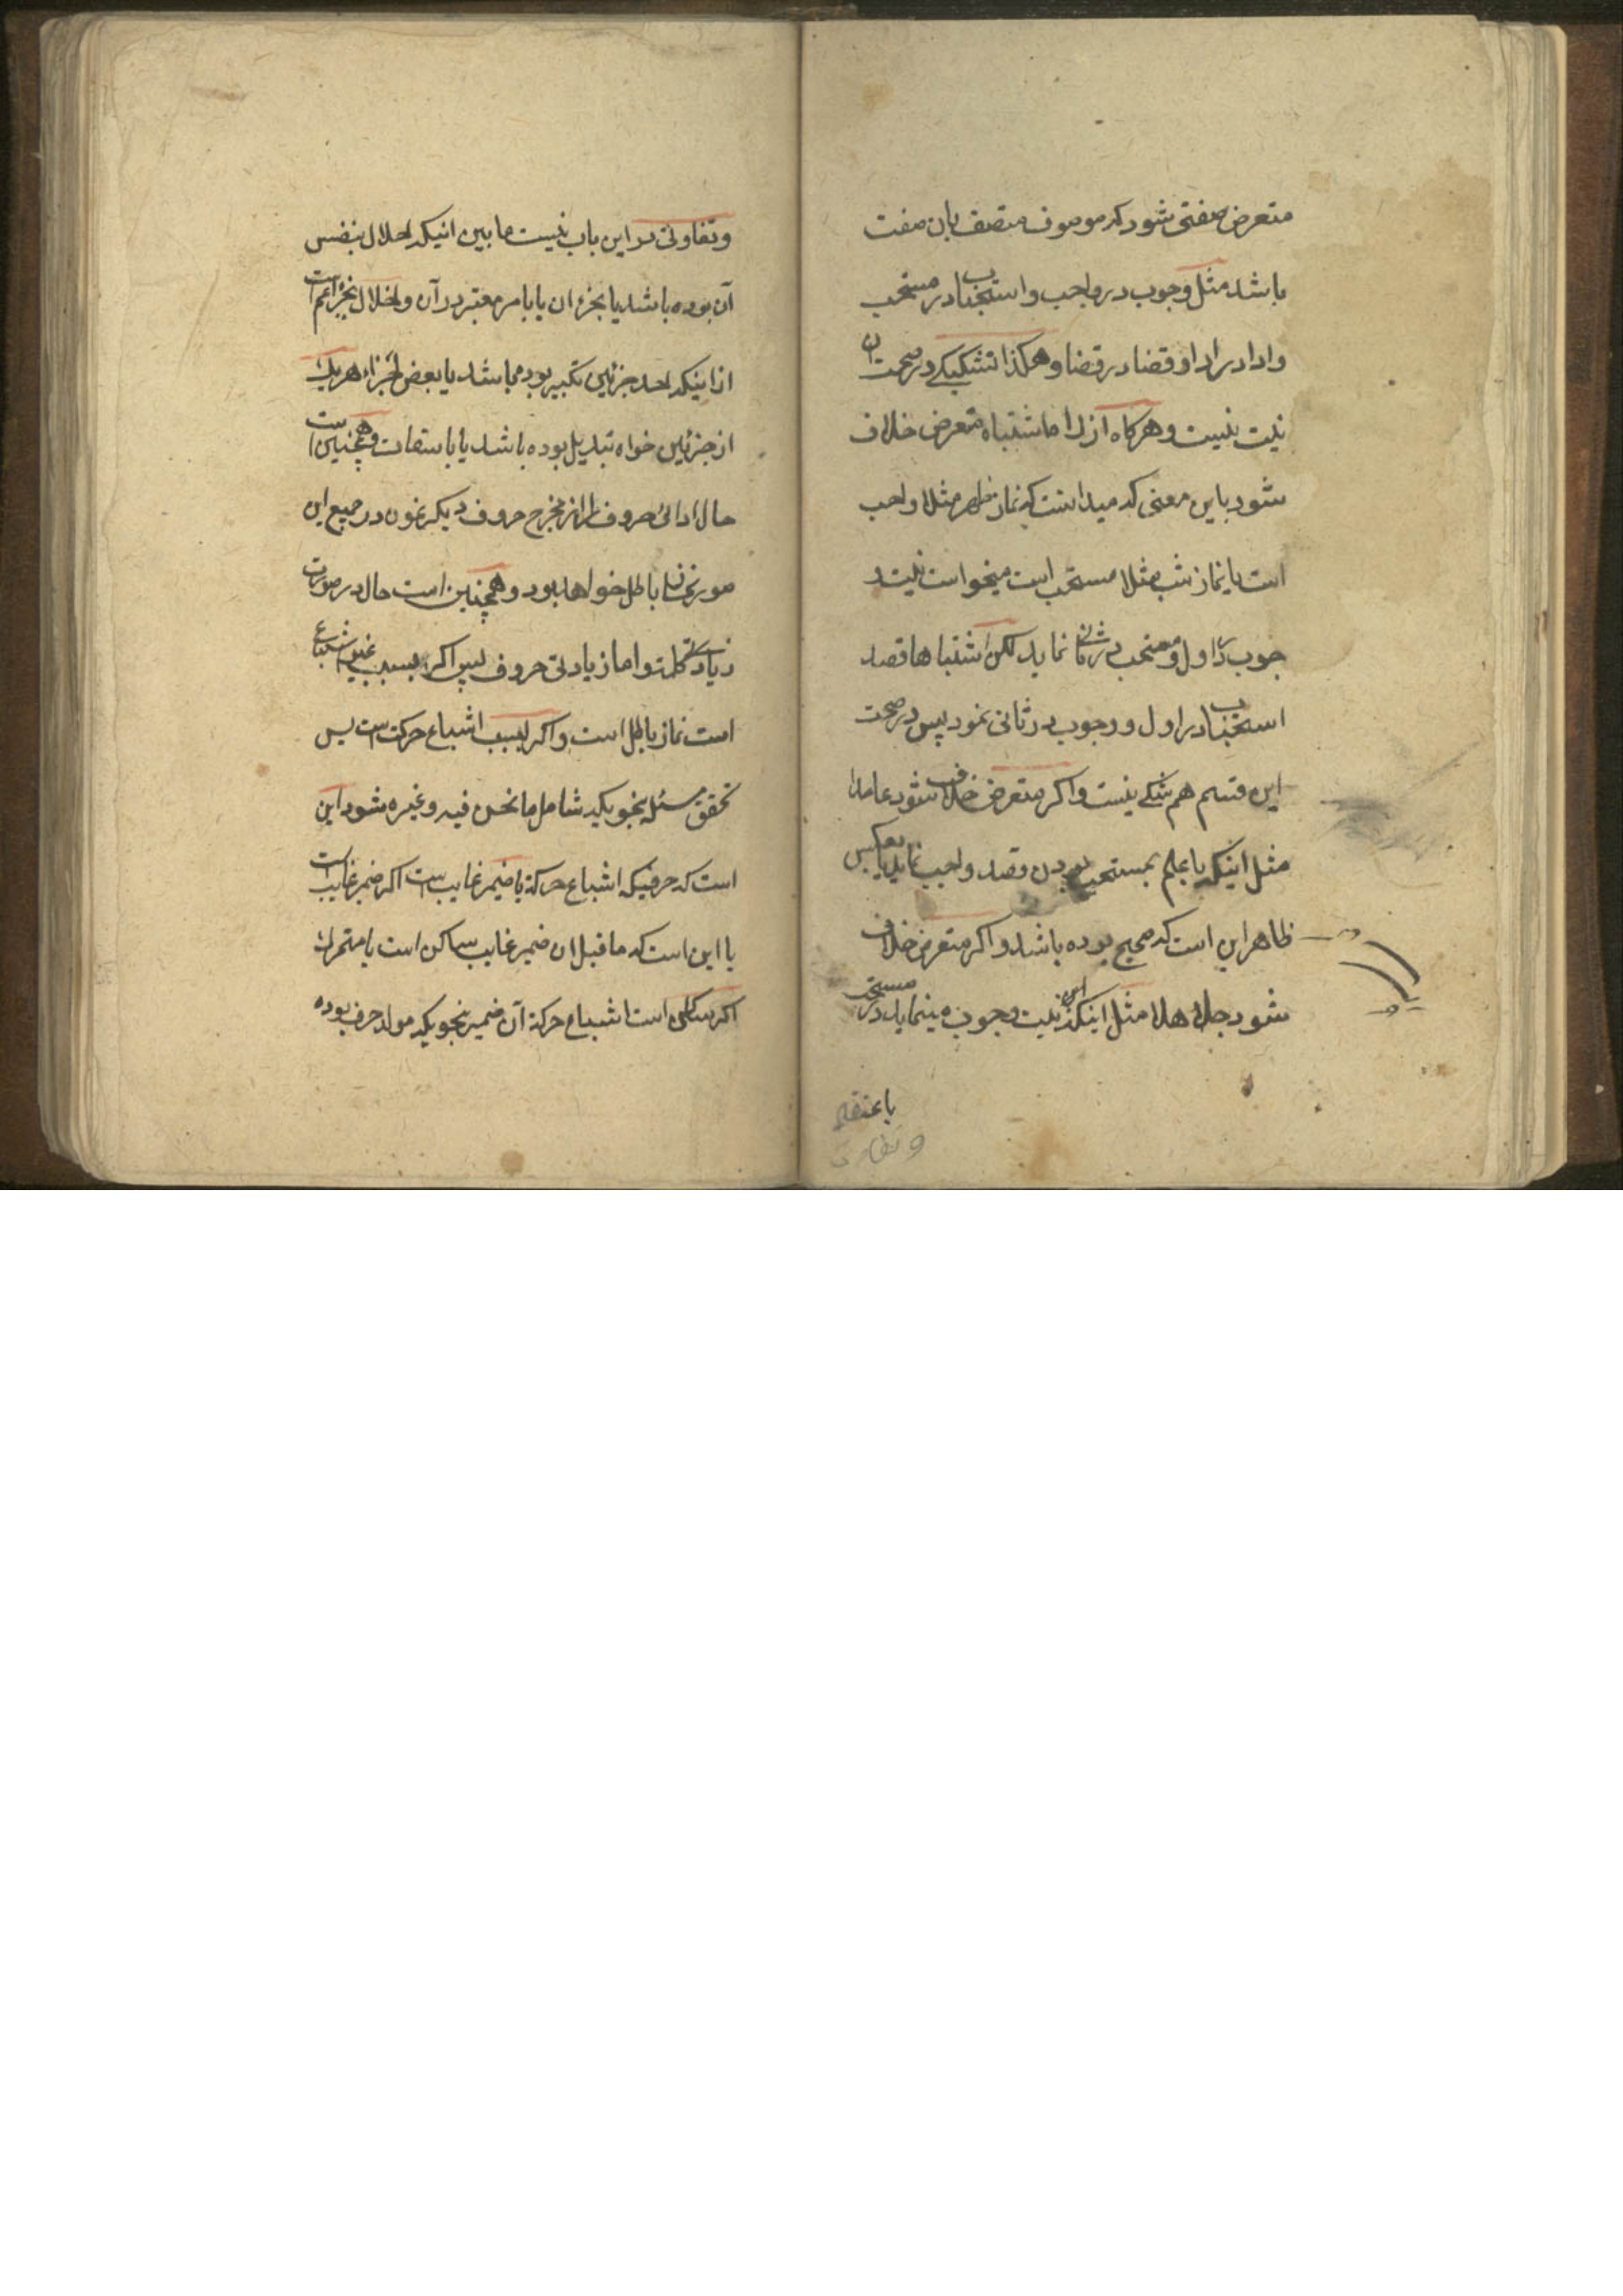 متعرض صفتی شود که موصوف متصف بان صفت
باشد مثل وجوب در واجب و استحباب در مستحب
و ادا در ادا و قضا در قضا و هکذا تشکیکی در صحت ان
نیت نیست و هرگاه از راه اشتباه متعرض خلاف
شود باین معنی که میدانست که نماز ظهر مثلا واجب
است یا نماز شب مثلا مستحب است میخواست نیت
جوب در اول و مستحب در ثانی نماید لکن اشتباها قصد
استحباب در اول و وجوب در ثانی نمود پس در صحت
این قسم هم شکی نیست و اکر متعرض خلاف شود عامدا
مثل اینکه با علم بمستحب بودن قصد واجب نماید یا بعکس
ظاهر این است که صحیح بوده باشد و اکر متعرض خلاف
شود جاهلا مثل اینکه نیت وجوب مینماید در مستحب
باعتقاد
و تفاوتی
و تفاوتی در این باب نیست ما بین انیکه اخلال بنفس
آن بوده باشد یا بجزء ان یا بامر معتبر در آن و اخلال بجزء اعم است
از اینکه احد جزئین تکبیر بوده باشد یا بعض اجزاء هر یک
از جزئین خواه تبدیل بوده باشد یا باسقاط و همچنین است
حال ادائ حروف را از مخرج حروف دیکر نمودن در جمیع این
صور نماز باطل خواهد بود و همچنین است حال در صورت
زیادتی کلمه و اما زیادتی حروف پس اکر بسبب غیر اشباع
است نماز باطل است و اکر بسبب اشباع حرکت است پس
تحقق مسئله بنحویکه شامل ما نحن فیه و غیره شود این
است که حرفیکه اشباع حرکة یا ضمیر غایب است اکر ضمیر غایب است
یا این است که ما قبل ان ضمیر غایب ساکن است یا متحرک
اکر ساکن است اشباع حرکة آن ضمیر بنحویکه مولد حرف بوده